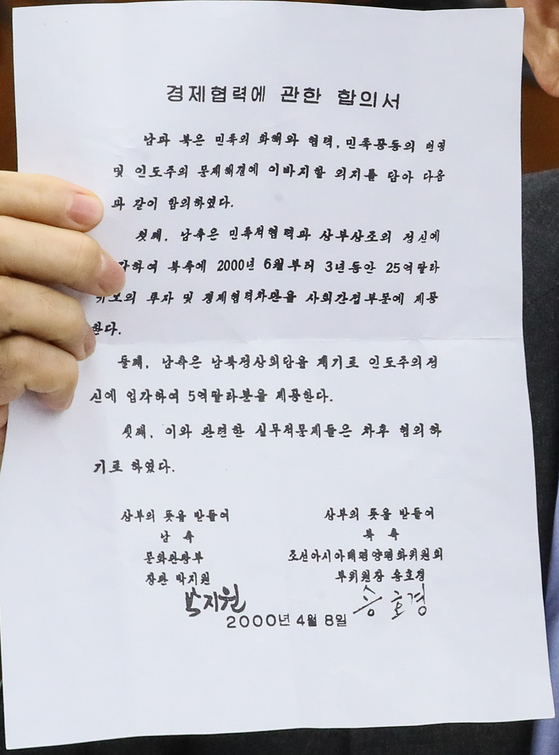 경제협력에 관한 합의서
남과 북은 민족의 화해와 협력, 민족공동의 번영
및 인도주의 문제해결에 이바지할 의지를 담아 다음
과 같이 합의하였다.
첫째, 남측은 민족적협력과 상부상조의 정신에
하여 북측에 2000년 6월부터 3년동안 25억딸라
의 투자 및 경제협력차관을 사회간접부문에 제공
한다.
둘째, 남측은 남북정상회담을 계기로 인도주의정
신에 입각하여 5억딸라분을 제공한다.
셋째, 이와 관련한 실무적문제들은 차후 협의하
기로 하였다.
상부의 뜻을 받들어
남 측
문화관광부
장관 박지원
박지원
상부의 뜻을 받들어
북 측
조선아시아태평양평화위원회
부위원장 송호경
송호경
2000년 4월 8일